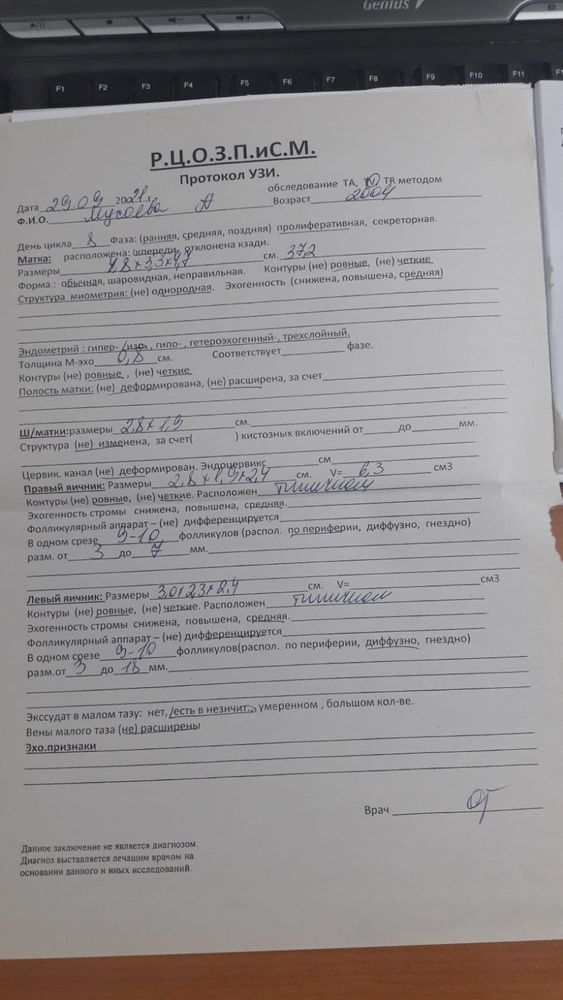 Genius
F1 F2 F3 F4 F5 F6 F7 F8 F9 F10 F11
Р.Ц.О.З.П.иС.М.
Протокол УЗИ.
Дата 29.09 2021 г. обследование ТА, TV, TR методом
Ф.И.О. Мусаева А Возраст 2004
День цикла 8 Фаза: (ранняя, средняя, поздняя) пролиферативная, секреторная.
Матка: расположена: кпереди, отклонена кзади.
Размеры 4,8х3,3х4,7 см. 37,2
Форма : обычная, шаровидная, неправильная. Контуры (не) ровные, (не) четкие
Структура миометрия: (не) однородная. Эхогенность (снижена, повышена, средняя)
Эндометрий : гипер- изо-, гипо- , гетероэхогенный-, трехслойный.
Толщина М-эхо 0,8 см. Соответствует фазе.
Контуры (не) ровные , (не) четкие
Полость матки: (не) деформирована, (не) расширена, за счет
Ш/матки:размеры 2,8х1,9 см.
Структура (не) изменена, за счет( ) кистозных включений от до мм.
Цервик. канал (не) деформирован. Эндоцервикс см
Правый яичник: Размеры 2,8х1,9х2,4 см. V= 6,3 см3
Контуры (не) ровные, (не) четкие. Расположен типичном
Эхогенность стромы снижена, повышена, средняя.
Фолликулярный аппарат – (не) дифференцируется
В одном срезе 9-10 фолликулов (распол. по периферии, диффузно, гнездно)
разм. от 3 до 7 мм.
Левый яичник: Размеры 3,0х2,3х2,4 см. V= см3
Контуры (не) ровные, (не) четкие. Расположен типичном
Эхогенность стромы снижена, повышена, средняя.
Фолликулярный аппарат – (не) дифференцируется
В одном срезе 9-10 фолликулов(распол. по периферии, диффузно, гнездно)
разм.от 3 до 18 мм.
Экссудат в малом тазу: нет, есть в незнчит., умеренном , большом кол-ве.
Вены малого таза (не) расширены
Эхо.признаки
Врач
Данное заключение не является диагнозом.
Диагноз выставляется лечащим врачом на
основании данного и иных исследований.